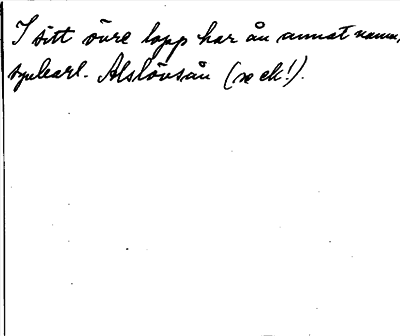 I sitt övre lopp har ån annat namn,
Alslövsån (se ek!).